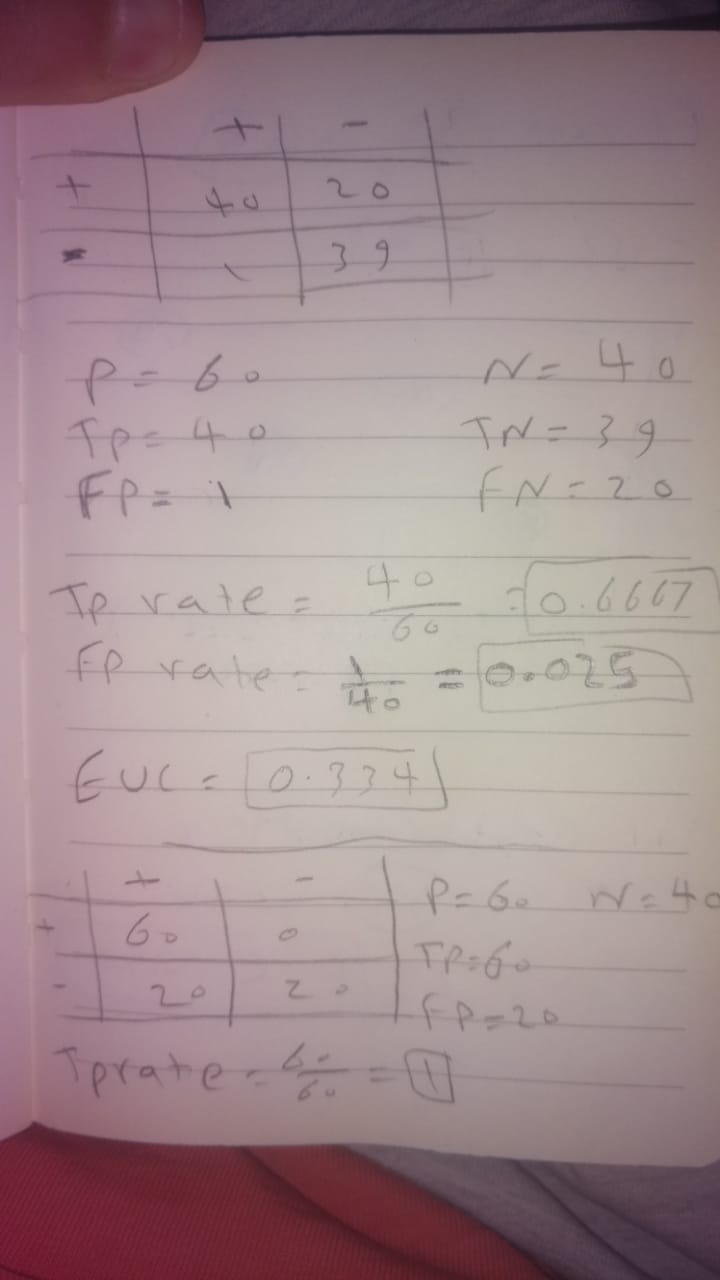 + -
+ 40 20
- 1 39
P = 60 N = 40
TP = 40 TN = 39
FP = 1 FN = 20
Tp rate = 40/60 = 0.6667
FP rate = 1/40 = 0.025
EUC = 0.334
+ - P = 60 N = 40
+ 60 0 TP = 60
- 20 20 FP = 20
Tprate = 60/60 = 1